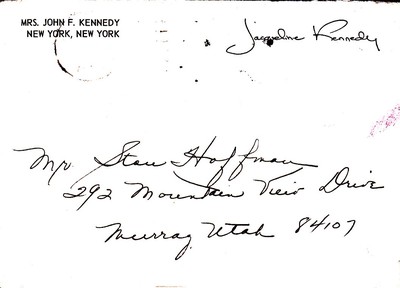 MRS. JOHN F. KENNEDY
NEW YORK, NEW YORK
Jacqueline Kennedy
Mr. Stan Hoffman
292 Mountain View Drive
Murray Utah 84107